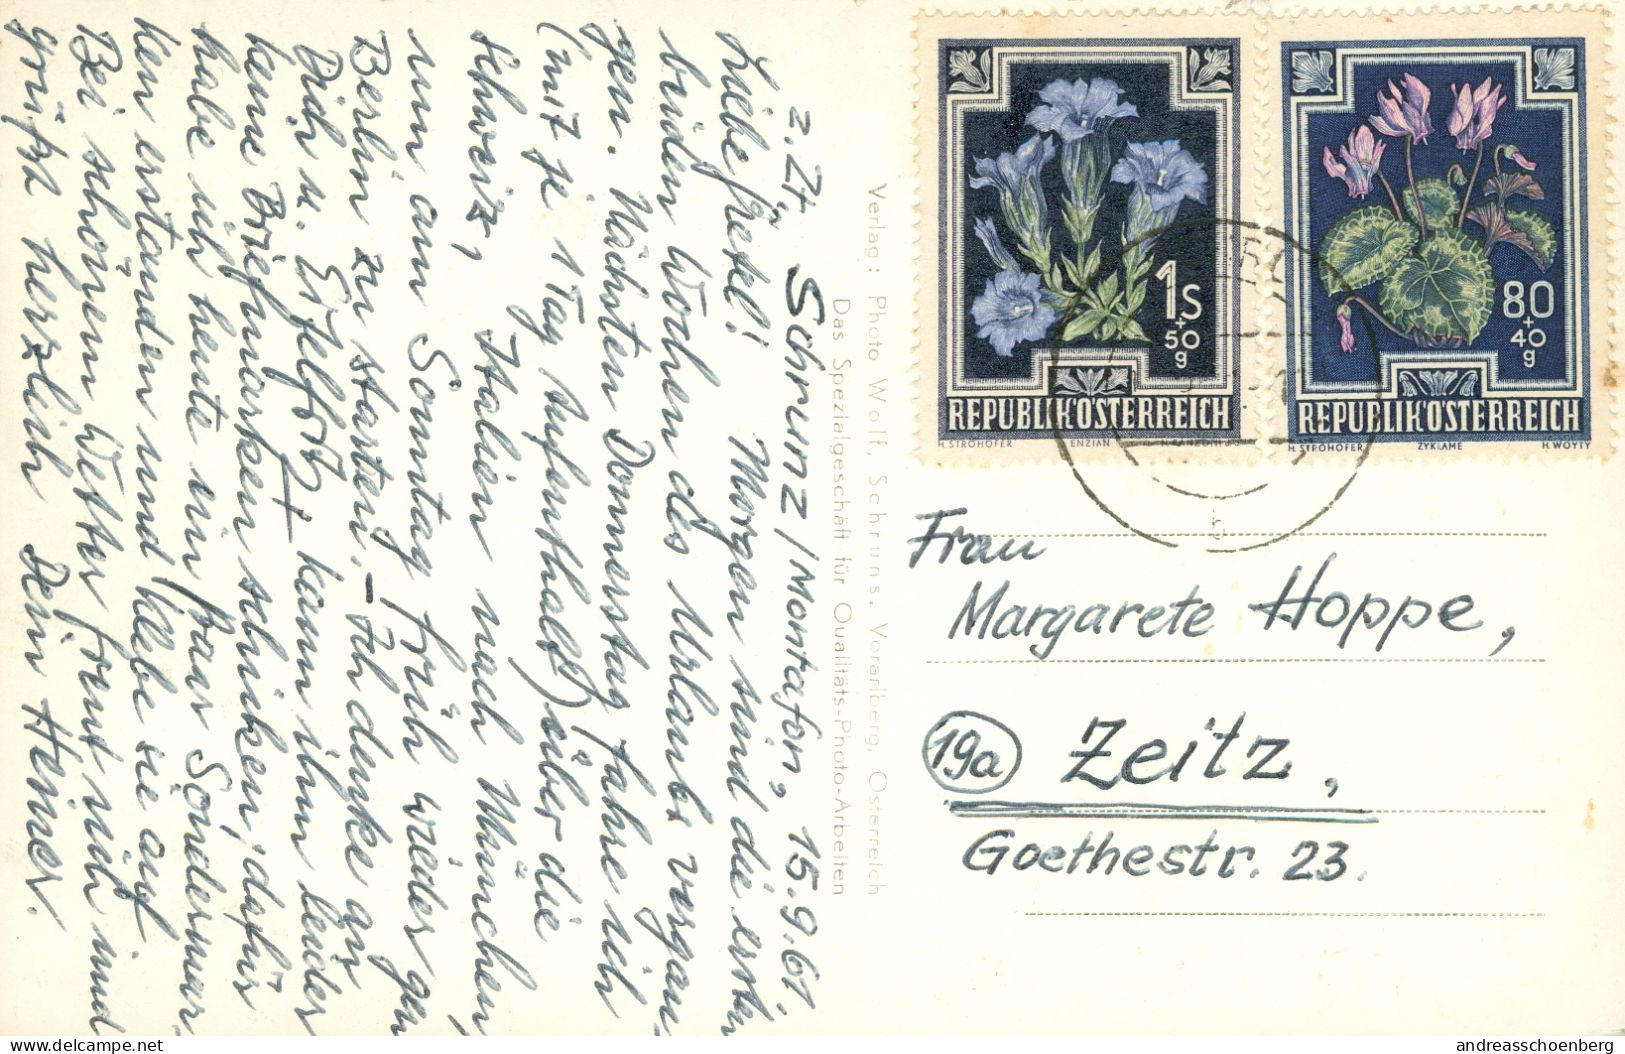 z. Zt. Schrunz / Montafon, 15.9.61.
Liebe Gretel! Morgen sind die ersten
beiden Wochen des Urlaubs vergan-
gen. Nächsten Donnerstag fahre ich
(mit je 1 Tag Aufenthalt) über die
Schweiz, Italien nach München,
um am Sonntag früh wieder gen
Berlin zu starten. – Ich denke an
Dich u.
kann ihm leider
keine Briefmarken schicken, dafür
habe ich heute ein paar Sondermar-
ken erstanden und klebe sie auf.
Bei schönem Wetter freut sich und
grüßt herzlich Dein Heiner.
Verlag: Photo Wolf, Schruns, Vorarlberg, Österreich
Das Spezialgeschäft für Qualitäts-Photo-Arbeiten
1S
+
50
g
REPUBLIK ÖSTERREICH
H. STROHOFER ENZIAN
80
+
40
g
REPUBLIK ÖSTERREICH
H. STROHOFER ZYKLAME H. WOYTY
b
Frau
Margarete Hoppe,
19a Zeitz,
Goethestr. 23.
delcampe.net
andreasschoenberg